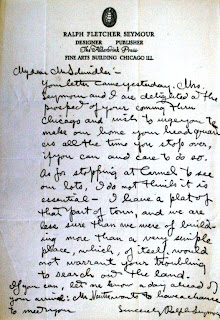 RALPH FLETCHER SEYMOUR
DESIGNER PUBLISHER
The Alderbrink Press
FINE ARTS BUILDING CHICAGO ILL.
My dear Mr Schindler:-
Your letter came yesterday. Mrs.
Seymour and I are delighted at the
prospect of your coming thru
Chicago and wish to urge you to
make our home your headquar-
ters all the time you stop over,
if you can and care to do so.
As for stopping at Carmel to see
our lots, I do not think it is
essential - I have a plat of
that part of town, and we are
less sure than we were of build-
ing more than a very simple
place, which, of itself, would
not warrant your troubling
to search out the land.
If you can, let me know a day ahead of
your arrival. Mr want to have a chance
to meet you. Sincerely Ralph Seymour